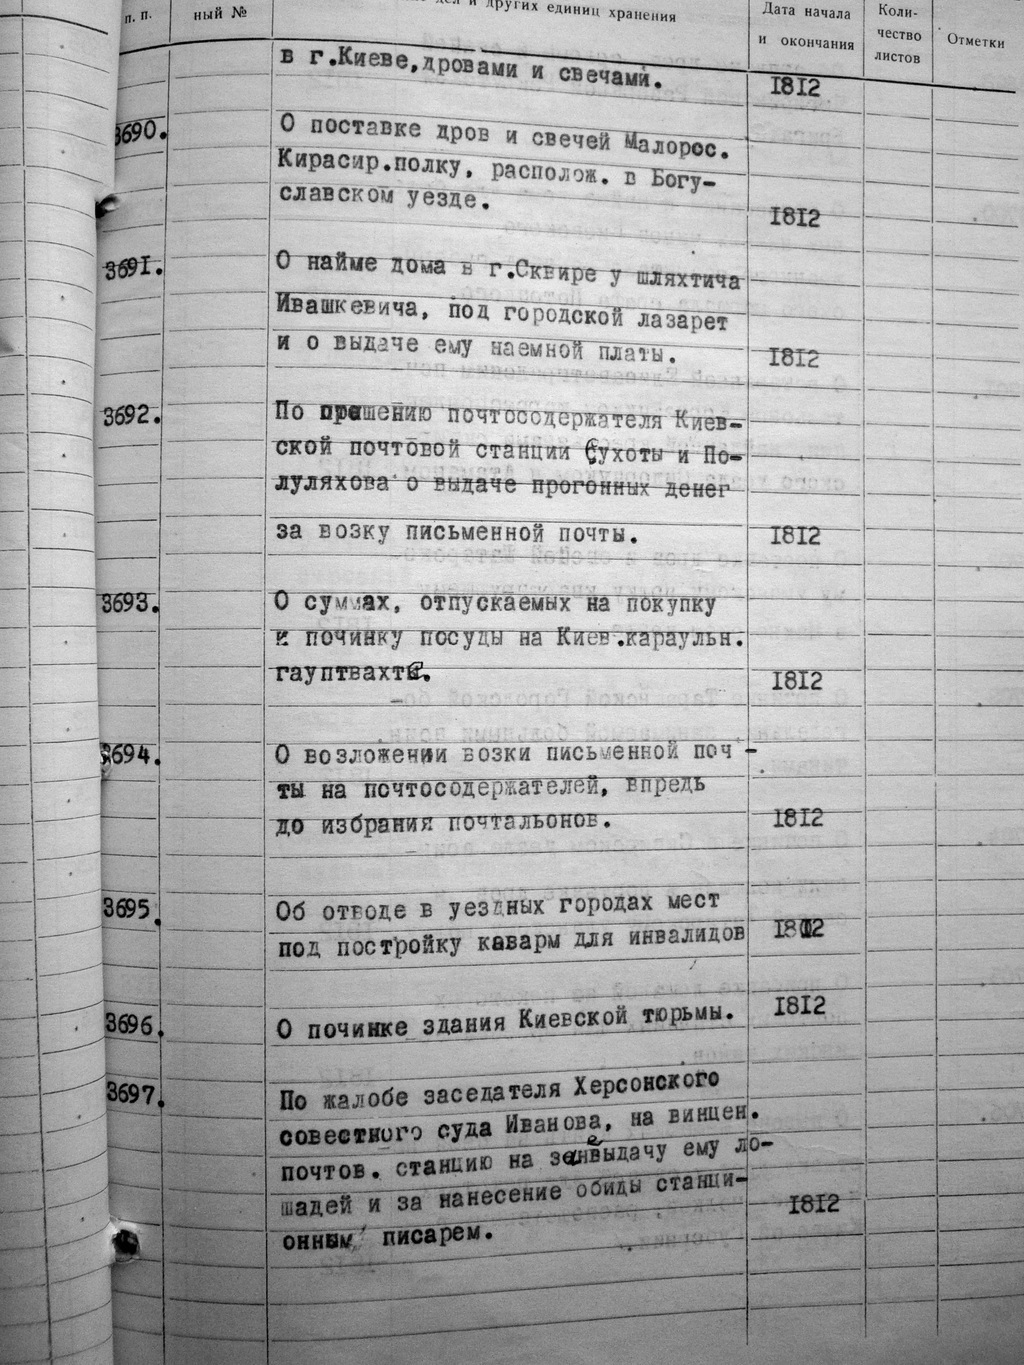 п. п. ный № дел и других единиц хранения Дата начала и окончания Коли-чество листов Отметки
в г.Киеве,дровами и свечами. 1812
3690. О поставке дров и свечей Малорос.
Кирасир.полку, располож. в Богу-
славском уезде. 1812
3691. О найме дома в г.Сквире у шляхтича
Ивашкевича, под городской лазарет
и о выдаче ему наемной платы. 1812
3692. По прошению почтосодержателя Киев-
ской почтовой станции Сухоты и По-
луляхова о выдаче прогонных денег
за возку письменной почты. 1812
3693. О суммах, отпускаемых на покупку
и починку посуды на Киев.караульн.
гауптвахте. 1812
3694. О возложении возки письменной поч-
ты на почтосодержателей, впредь
до избрания почтальонов. 1812
3695. Об отводе в уездных городах мест
под постройку каварм для инвалидов 1812
3696. О починке здания Киевской тюрьмы. 1812
3697. По жалобе заседателя Херсонского
совестного суда Иванова, на винцен.
почтов. станцию на невыдачу ему ло-
шадей и за нанесение обиды станци-
онным писарем. 1812